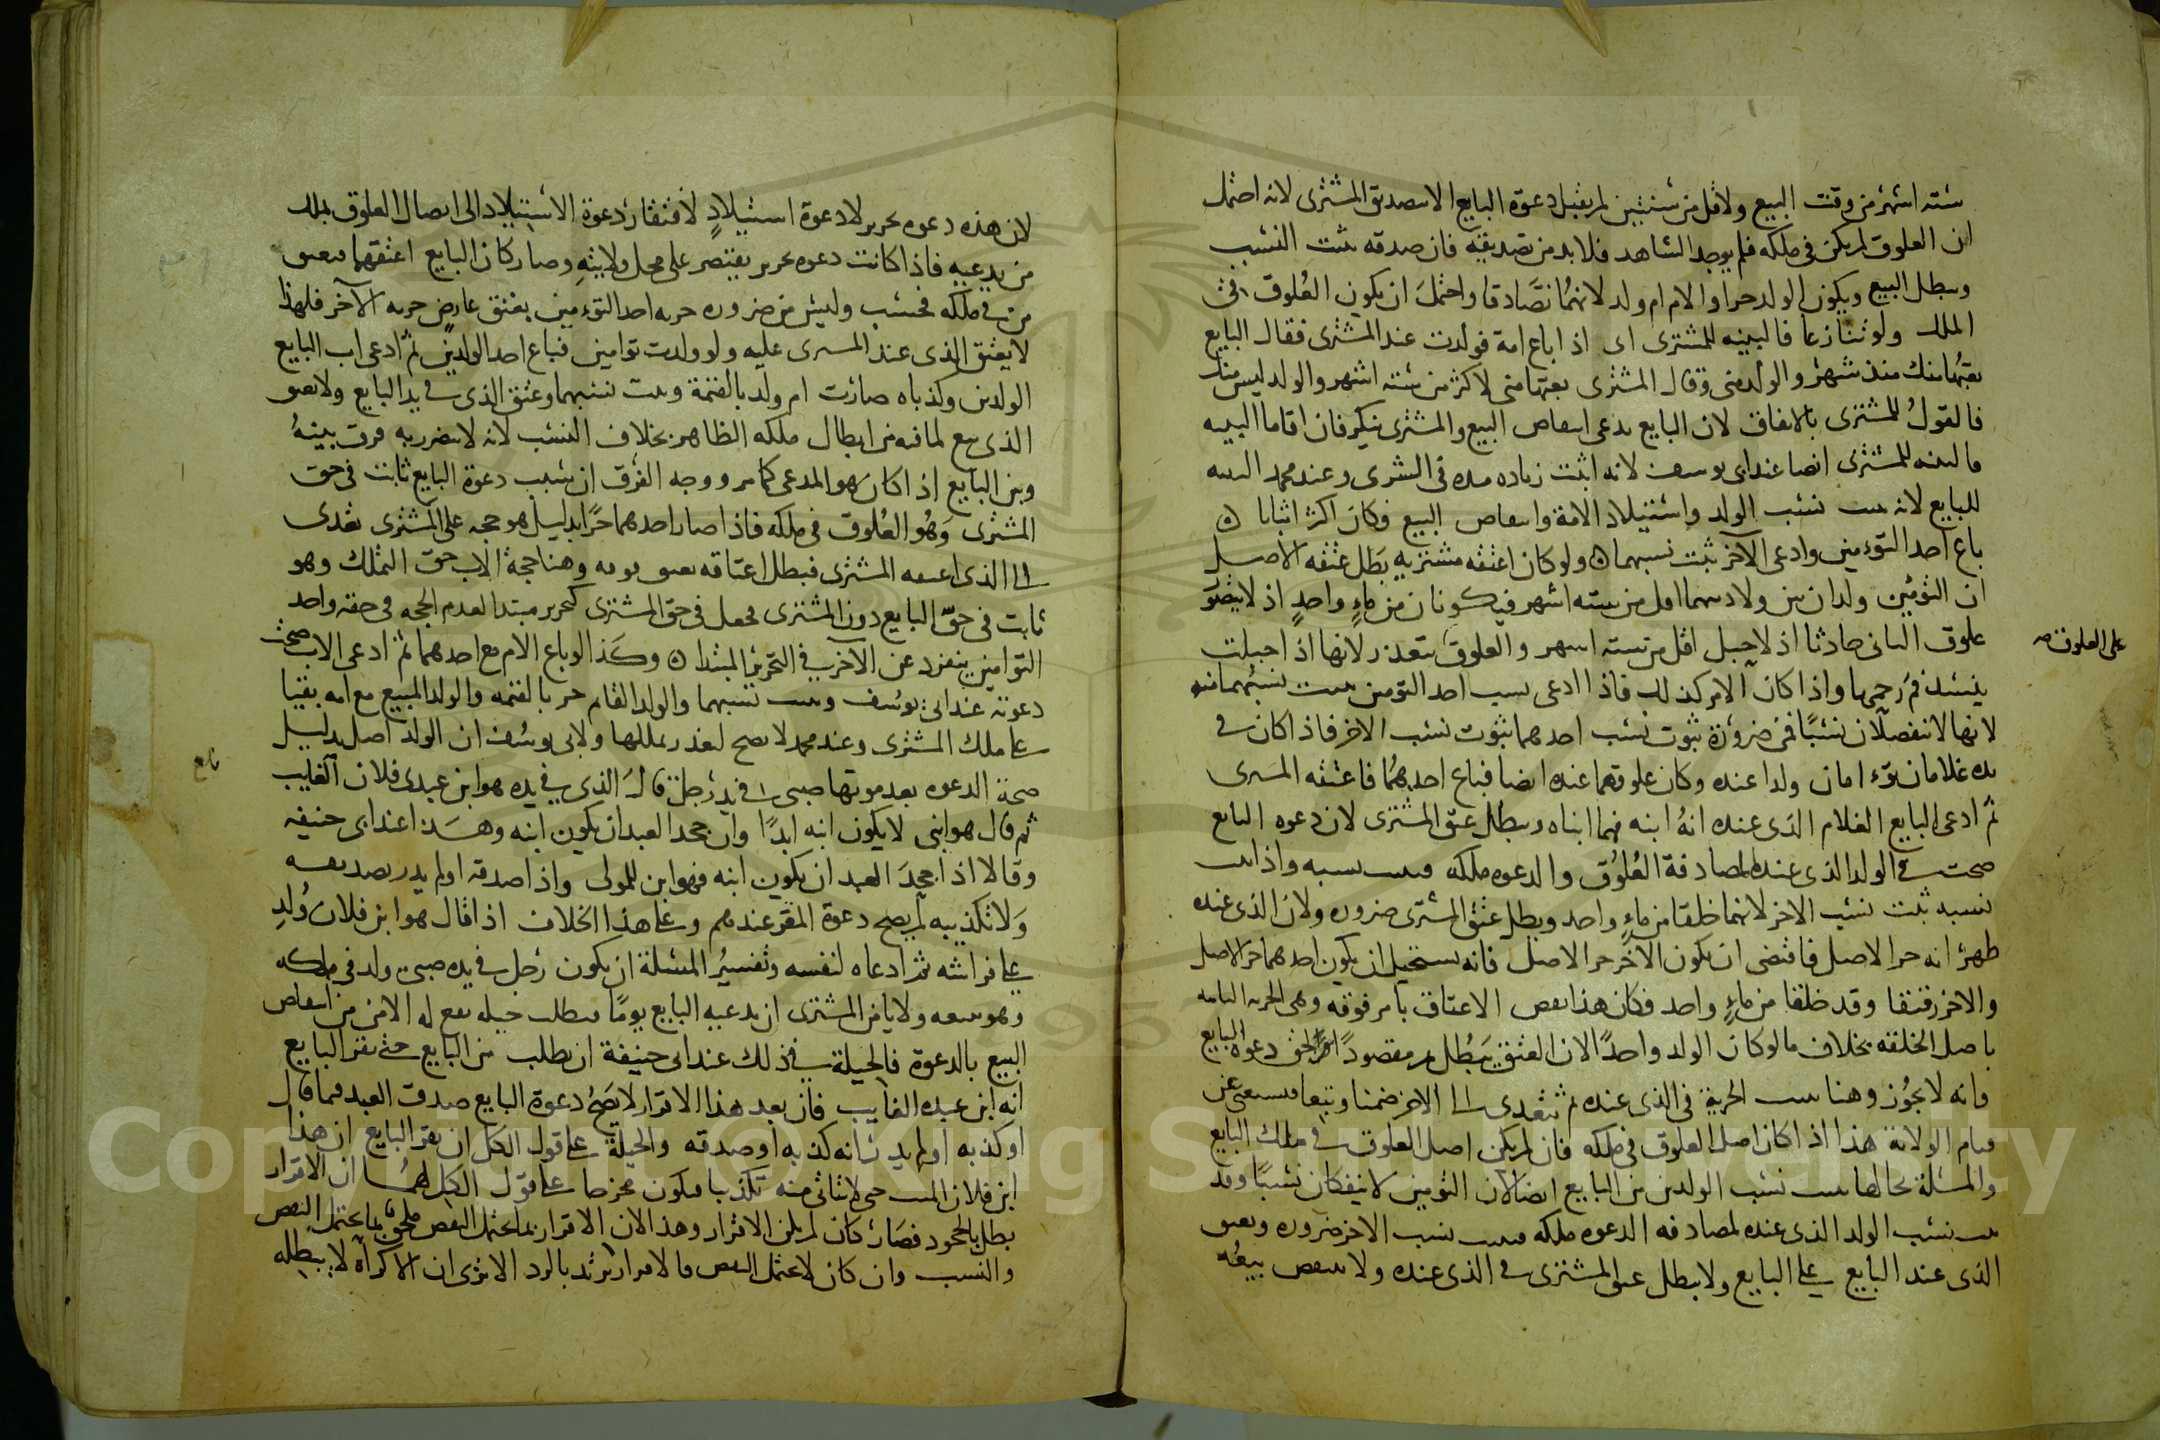 ستة اشهر من وقت البيع ولاقل من سنتين لم يقبل دعوة البايع الا بتصديق المشتري لانه احتمل
ان العلوق لم يكن في ملكه فلم يوجد الشاهد فلابد من تصديقه فان صدقه يثبت النسب
ويبطل البيع ويكون الولد حرا والام ام ولد لانهما تصادقا واحتمل ان يكون العلوق في
الملك ولو تنازعا فالبينه للمشتري اى اذا باع امة فولدت عند المشتري فقال البايع
بعتها منك منذ شهر والولد مني وقال المشتري بعتها مني لاكثر من ستة اشهر والولد ليس منك
فالقول للمشتري بالاتفاق لان البايع يدعي انتقاض البيع والمشتري ينكر فان اقاما البينه
فالبينه للمشتري ايضا عند ابي يوسف لانه اثبت زيادة مدة في الشرى وعند محمد البينه
للبايع لانه يثبت نسب الولد واستيلاد الامة وانتقاض البيع فكان اكثر اثباتا
باع احد التوءمين وادعى الاخر ثبت نسبهما ولو كان اعتقه مشتريه بطل عتقه الاصل
ان التوءمين ولدان بين ولادتيهما اقل من ستة اشهر فيكونان من ماء واحد اذ لا يتصور
علوق الثاني حادثا اذ لا حبل اقل من ستة اشهر والعلوق متعذر لانها اذا حبلت
على العلوق
ينسد فم رحمها واذا كان الامر كذلك فاذا ادعى نسب احد التومين يثبت نسبهما منه
لانهما لا ينفصلان نسبا فمن ضرورة ثبوت نسب احدهما ثبوت نسب الاخر فاذا كان في
يده غلامان توءامان ولدا عنده وكان علوقهما عنده ايضا فباع احدهما فاعتقه المشترى
ثم ادعى البايع الغلام الذي عنده انه ابنه فهما ابناه ويبطل عتق المشتري لان دعوة البايع
صحت في الولد الذي عنده لمصادفة العلوق والدعوه ملكه فيثبت نسبه واذا ثبت
نسبه ثبت نسب الاخر لانهما خلقا من ماء واحد ويبطل عتق المشترى ضرورة ولان الذي عنده
ظهر انه حر الاصل فاقتضى ان يكون الآخر حر الاصل فانه يستحيل ان يكون احدهما حر الاصل
والاخر رقيقا وقد خلقا من ماء واحد فكان هذا نقض الاعتاق بامر فوقه وهى الحرية الثابته
باصل الخلقه بخلاف ما لو كان الولد واحدا لان العتق يبطل مقصودا لحق دعوة البايع
وانه لا يجوز وهنا يثبت الحرية في الذي عنده ثم تتعدى الى الاخر ضمنا وتبعا فيستغنى عن
قيام الولاية هذا اذا كان اصل العلوق في ملكه فان لم يكن اصل العلوق في ملك البايع
والمسئلة بحالها يثبت نسب الولدين من البايع ايضا لان التومين لا ينفكان نسبا وقد
ثبت نسب الولد الذي عنده لمصادفه الدعوه ملكه فيثبت نسب الاخر ضرورة ويعتق
الذي عند البايع على البايع ولا يبطل عتق المشتري في الذي عنده ولا ينقض بيعه
لان هذه دعوه تحرير لا دعوة استيلاد لافتقار دعوة الاستيلاد الى اتصال العلوق بملك
من يدعيه فاذا كانت دعوه تحرير يقتصر على محل ولايته وصار كان البايع اعتقهما فيعتق
من في ملكه فحسب وليس من ضروره حريه احد التوءمين بعتق عارض حريه الآخر فلهذا
لا يعتق الذي عند المشترى عليه ولو ولدت توامين فباع احد الولدين ثم ادعى اب البايع
الولدين وكذباه صارت ام ولد بالقيمة ويثبت نسبهما وعتق الذي في يد البايع ولا يعتق
الذي بيع لما فيه من ابطال ملكه الظاهر بخلاف النسب لانه لا ضرر به فرق بينه
وبين البايع اذا كان هو المدعي كما مر ووجه الفرق ان سبب دعوة البايع ثابت في حق
المشتري وهو العلوق في ملكه فاذا صار احدهما حرا بدليل هو حجة على المشتري تعدى
الى الذي اعتقه المشتري فبطل اعتاقه وهنا حجة الاب حق التملك وهو
ثابت في حق البايع دون المشتري فجعل في حق المشتري كتحرير مبتدا لعدم الحجه في حقه واحد
التوامين ينفرد عن الآخر في التحرير المبتدا وكذا لو باع الام مع احدهما ثم ادعى الاب صحت
دعوته عند ابي يوسف ويثبت نسبهما والولد القايم حر بالقيمه والولد المبيع مع امه بقيا
على ملك المشتري وعند محمد لا يصح لتعذر تملكها ولابي يوسف ان الولد اصل بدليل
صحة الدعوه بعد موتها صبى في يد رجل قال الذي في يده هو ابن عبدي فلان الغايب
ثم قال هو ابني لا يكون ابنه ابدا وان جحد العبد ان يكون ابنه وهذا عند ابي حنيفه
وقالا اذا جحد العبد ان يكون ابنه فهو ابن للمولى واذا صدقه او لم يدر تصديقه
ولا تكذيبه لم يصح دعوة المقر عندهم وعلى هذا الخلاف اذا قال هو ابن فلان ولد
على فراشه ثم ادعاه لنفسه وتفسير المسئلة ان يكون رجل في يده صبى ولد في ملكه
وهو يبيعه ولا يامن المشتري ان يدعيه البايع يوما فيطلب حيله يقع له الامن من انتقاض
البيع بالدعوة فالحيلة في ذلك عند ابي حنيفة ان يطلب من البايع حتى يقر البايع
انه ابن عبده الغايب فان بعد هذا الاقرار لا يصح دعوة البايع صدق العبد فيما قال
او كذبه او لم يدر انه كذبه او صدقه والحيلة على قول الكل ان يقر البايع ان هذا
ابن فلان الميت حتى لا يتاتى منه تكذيبا فيكون مخرجا على قول الكل لهما ان الاقرار
بطل بالجحود فصار كان لم يكن الاقرار وهذا لان الاقرار بما يحتمل النقض ملحق بما يحتمل النقض
والنسب وان كان لا يحتمل النقض فالاقرار يرتد بالرد الا ترى ان الاكراه لا يبطله